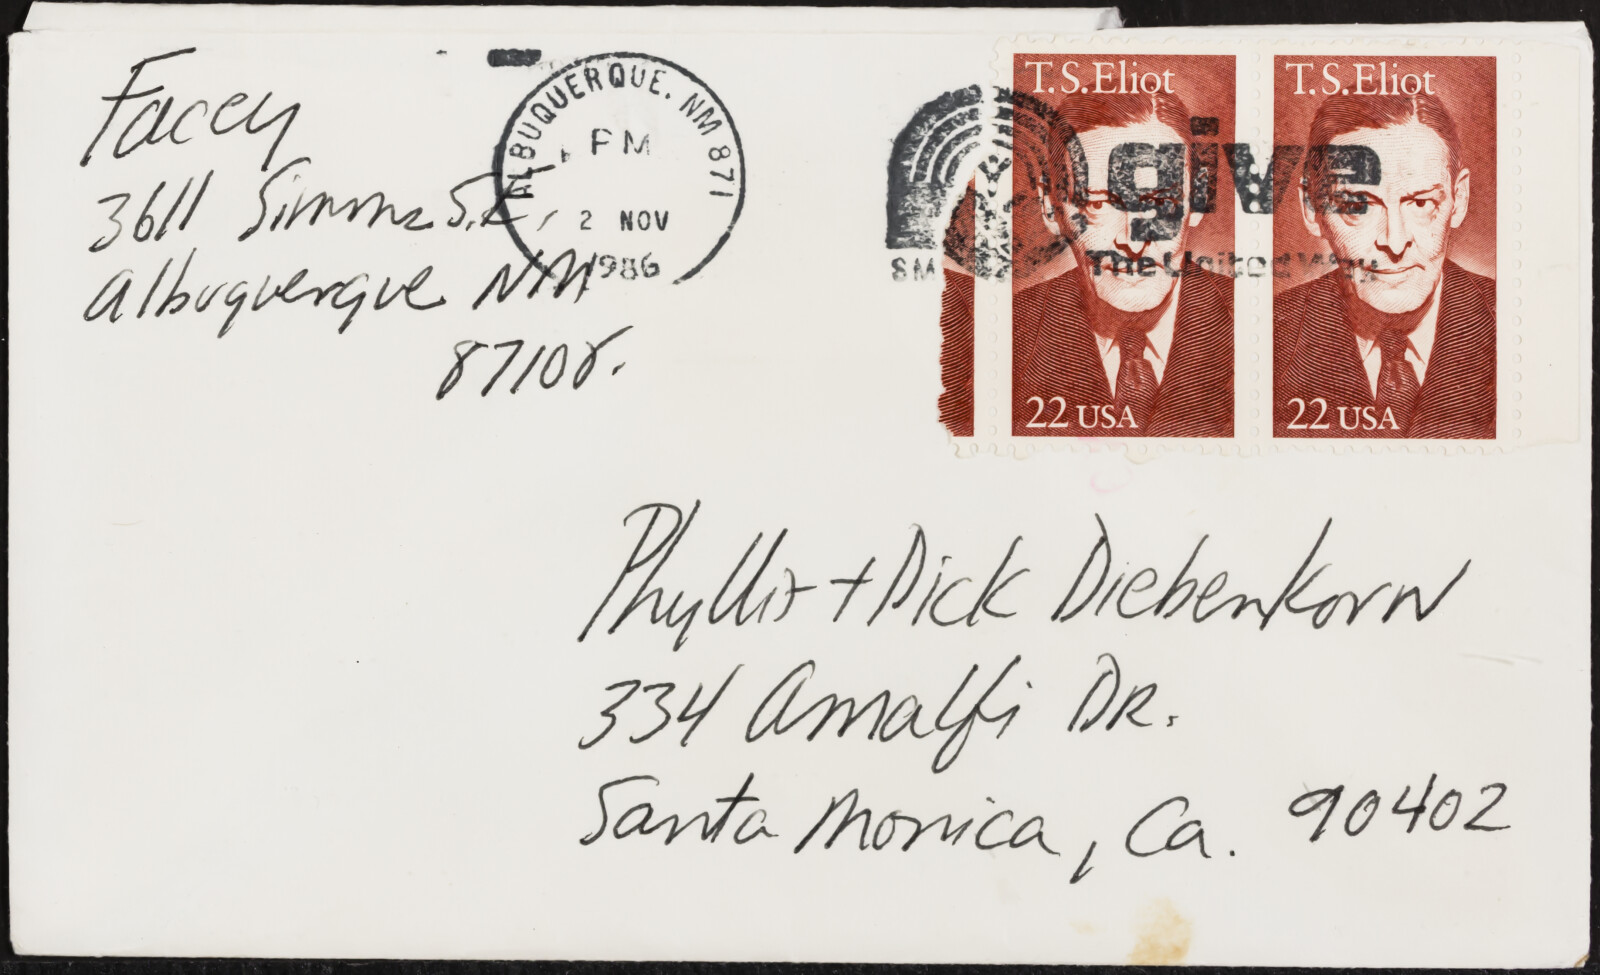 Facey
3611 Simms S.E.
Albuquerque NM
87108.
ALBUQUERQUE, NM 871
PM
2 NOV
1986
give
The United Way
T.S.Eliot
22 USA
T.S.Eliot
22 USA
Phyllis + Dick Diebenkorn
334 Amalfi DR.
Santa Monica, Ca. 90402